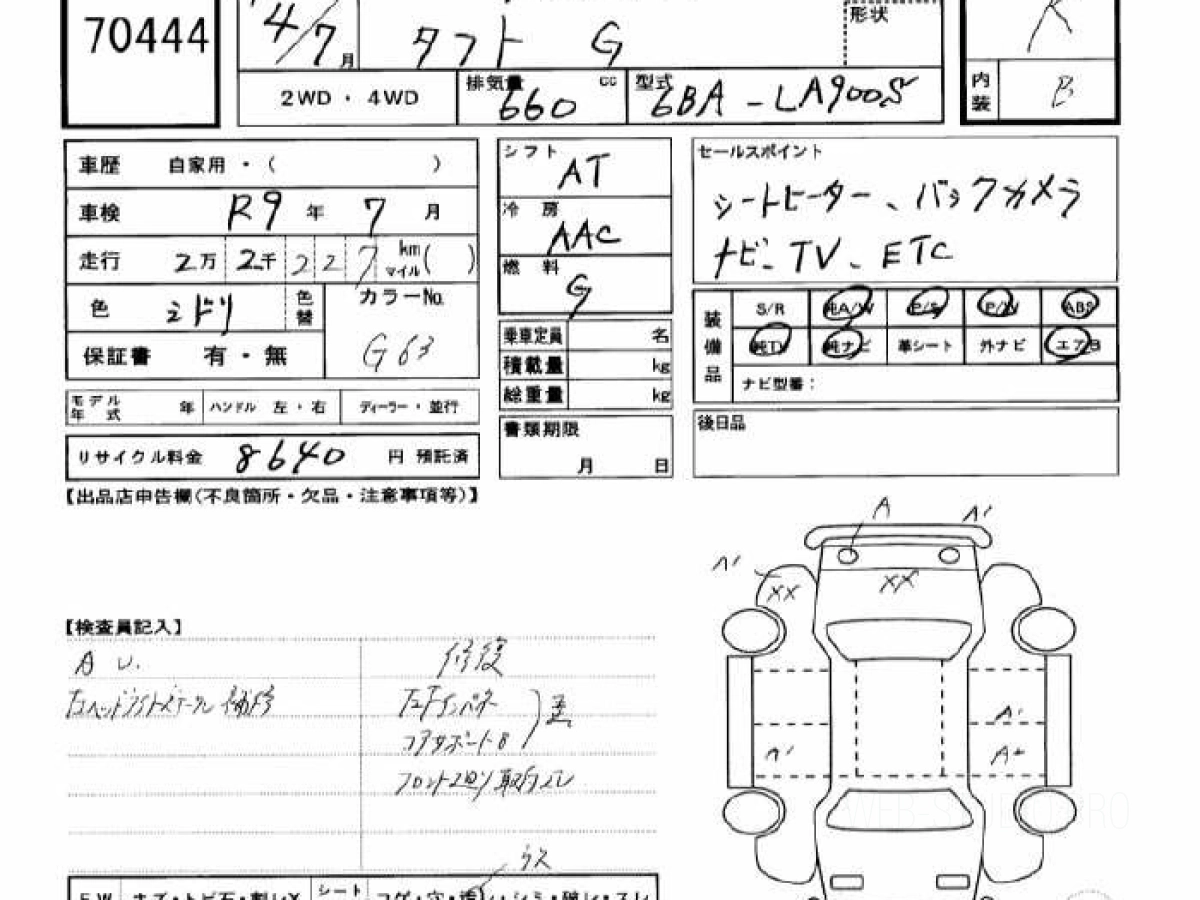 70444
4/7 月
タフト G
形状
R
2WD・4WD
排気量 660 cc
型式 6BA-LA900S
内装 B
車歴 自家用・( )
車検 R9 年 7 月
走行 2万 2千 2 2 7 km マイル ( )
色 ミドリ 色替
カラーNo. G63
保証書 有・無
モデル年式 年 ハンドル 左・右 ディーラー・並行
リサイクル料金 8640 円 預託済
シフト AT
冷房 AAC
燃料 G
乗車定員 名
積載量 kg
総重量 kg
書類期限 月 日
セールスポイント
シートヒーター、バックカメラ
ナビ、TV、ETC
装備品
S/R 純A/W P/S P/W ABS
純TV 純ナビ 革シート 外ナビ エアB
ナビ型番:
後日品
【出品店申告欄(不良箇所・欠品・注意事項等)】
A A'
A'
XX XX
【検査員記入】
A U.
左ヘッドライトステーグル 補修
修復
左Fインパネ
コアサポート
歪
フロント廻り取付ズレ
A'
A' A+
ウス
WEB-S
RO
FW キズ・トビ石・割レX シート コゲ・穴・・シミ・破レ・スレ